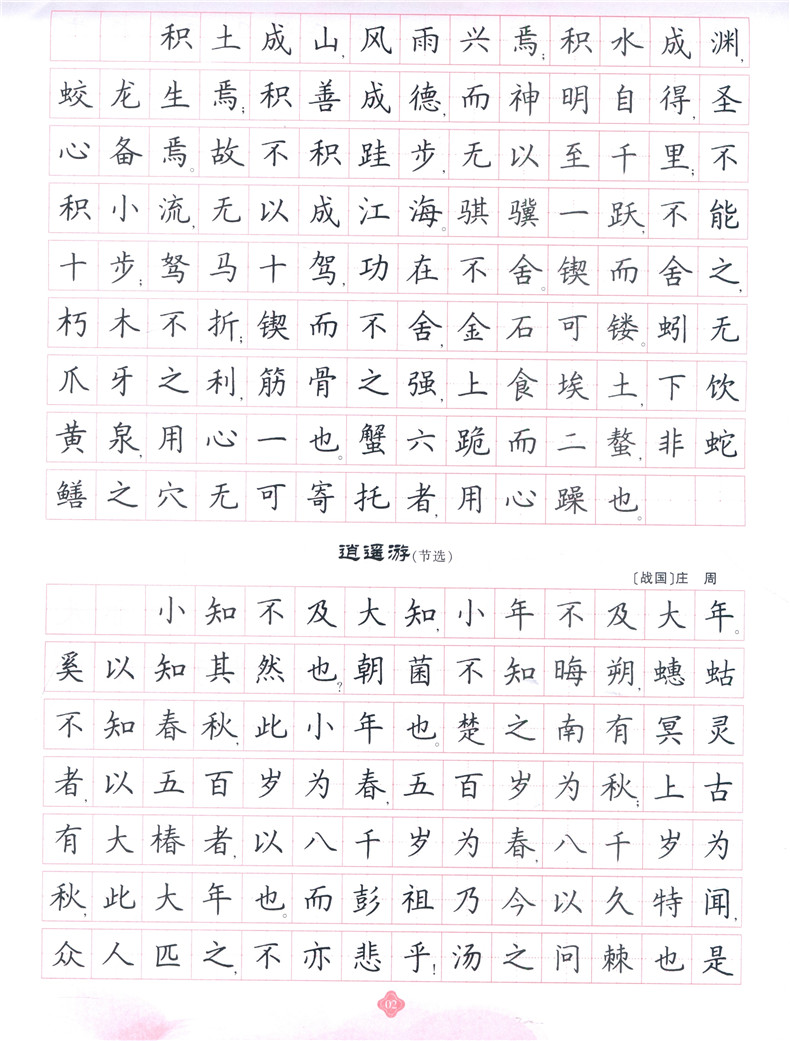 积土成山,风雨兴焉;积水成渊,
蛟龙生焉;积善成德,而神明自得,圣
心备焉。故不积跬步,无以至千里;不
积小流,无以成江海。骐骥一跃,不能
十步;驽马十驾,功在不舍。锲而舍之,
朽木不折;锲而不舍,金石可镂。蚓无
爪牙之利,筋骨之强,上食埃土,下饮
黄泉,用心一也。蟹六跪而二螯,非蛇
鳝之穴无可寄托者,用心躁也。
逍遥游(节选)
〔战国〕庄 周
小知不及大知,小年不及大年。
奚以知其然也?朝菌不知晦朔,蟪蛄
不知春秋,此小年也。楚之南有冥灵
者,以五百岁为春,五百岁为秋;上古
有大椿者,以八千岁为春,八千岁为
秋,此大年也。而彭祖乃今以久特闻,
众人匹之,不亦悲乎!汤之问棘也是
02